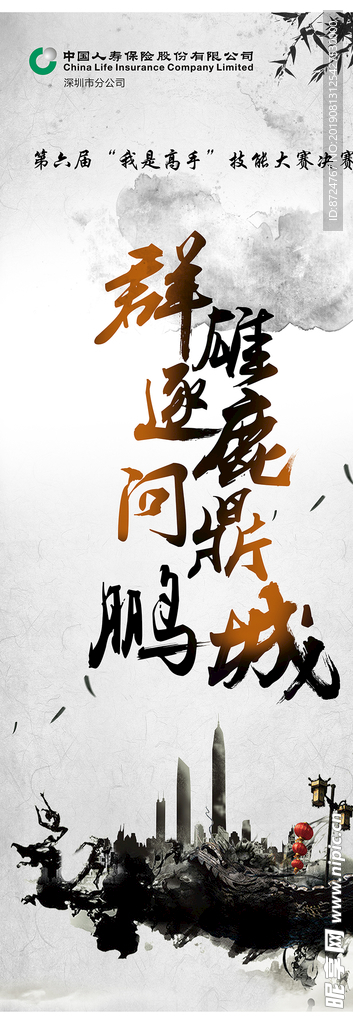 中国人寿保险股份有限公司
China Life Insurance Company Limited
深圳市分公司
第六届“我是高手”技能大赛决赛
群雄
逐鹿
问鼎
鹏城
昵享网 www.nipic.cn